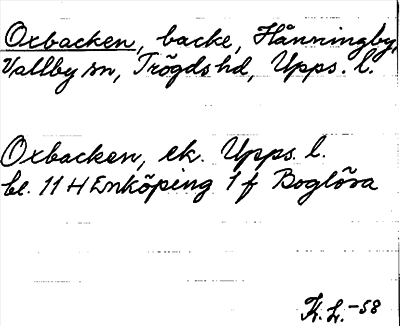 Oxbacken, backe, Hånningby,
Vallby sn, Trögds hd, Upps. l.
Oxbacken, ek. Upps. l.
bl. 11 H Enköping 1 f Boglösa
K. L. -58